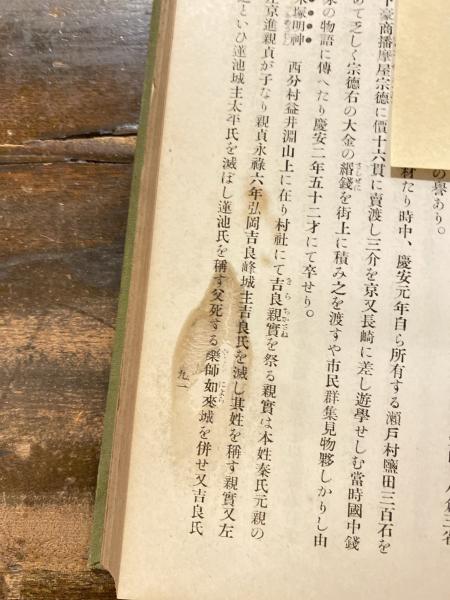 の譽あり。
材たり時中、慶安元年自ら所有する瀬戸村鹽田三百石を
下豪商播磨屋宗德に價十六貫に賣渡し三介を京又長崎に差し遊學せしむ當時國中錢
めて乏しく宗德右の大金の緡錢を街上に積み之を渡すや市民群集見物夥しかりし由
の物語に傳へたり慶安二年五十二才にて卒せり。
塚明神　西分村益井淵山上に在り村社にて吉良親實を祭る親實は本姓秦氏元親の
左京進親貞が子なり親貞永祿六年弘岡吉良峰城主吉良氏を滅し其姓を稱す親實又左
といひ蓮池城主太平氏を滅ぼし蓮池氏を稱す父死する藥師如來城を併せ又吉良氏
九一